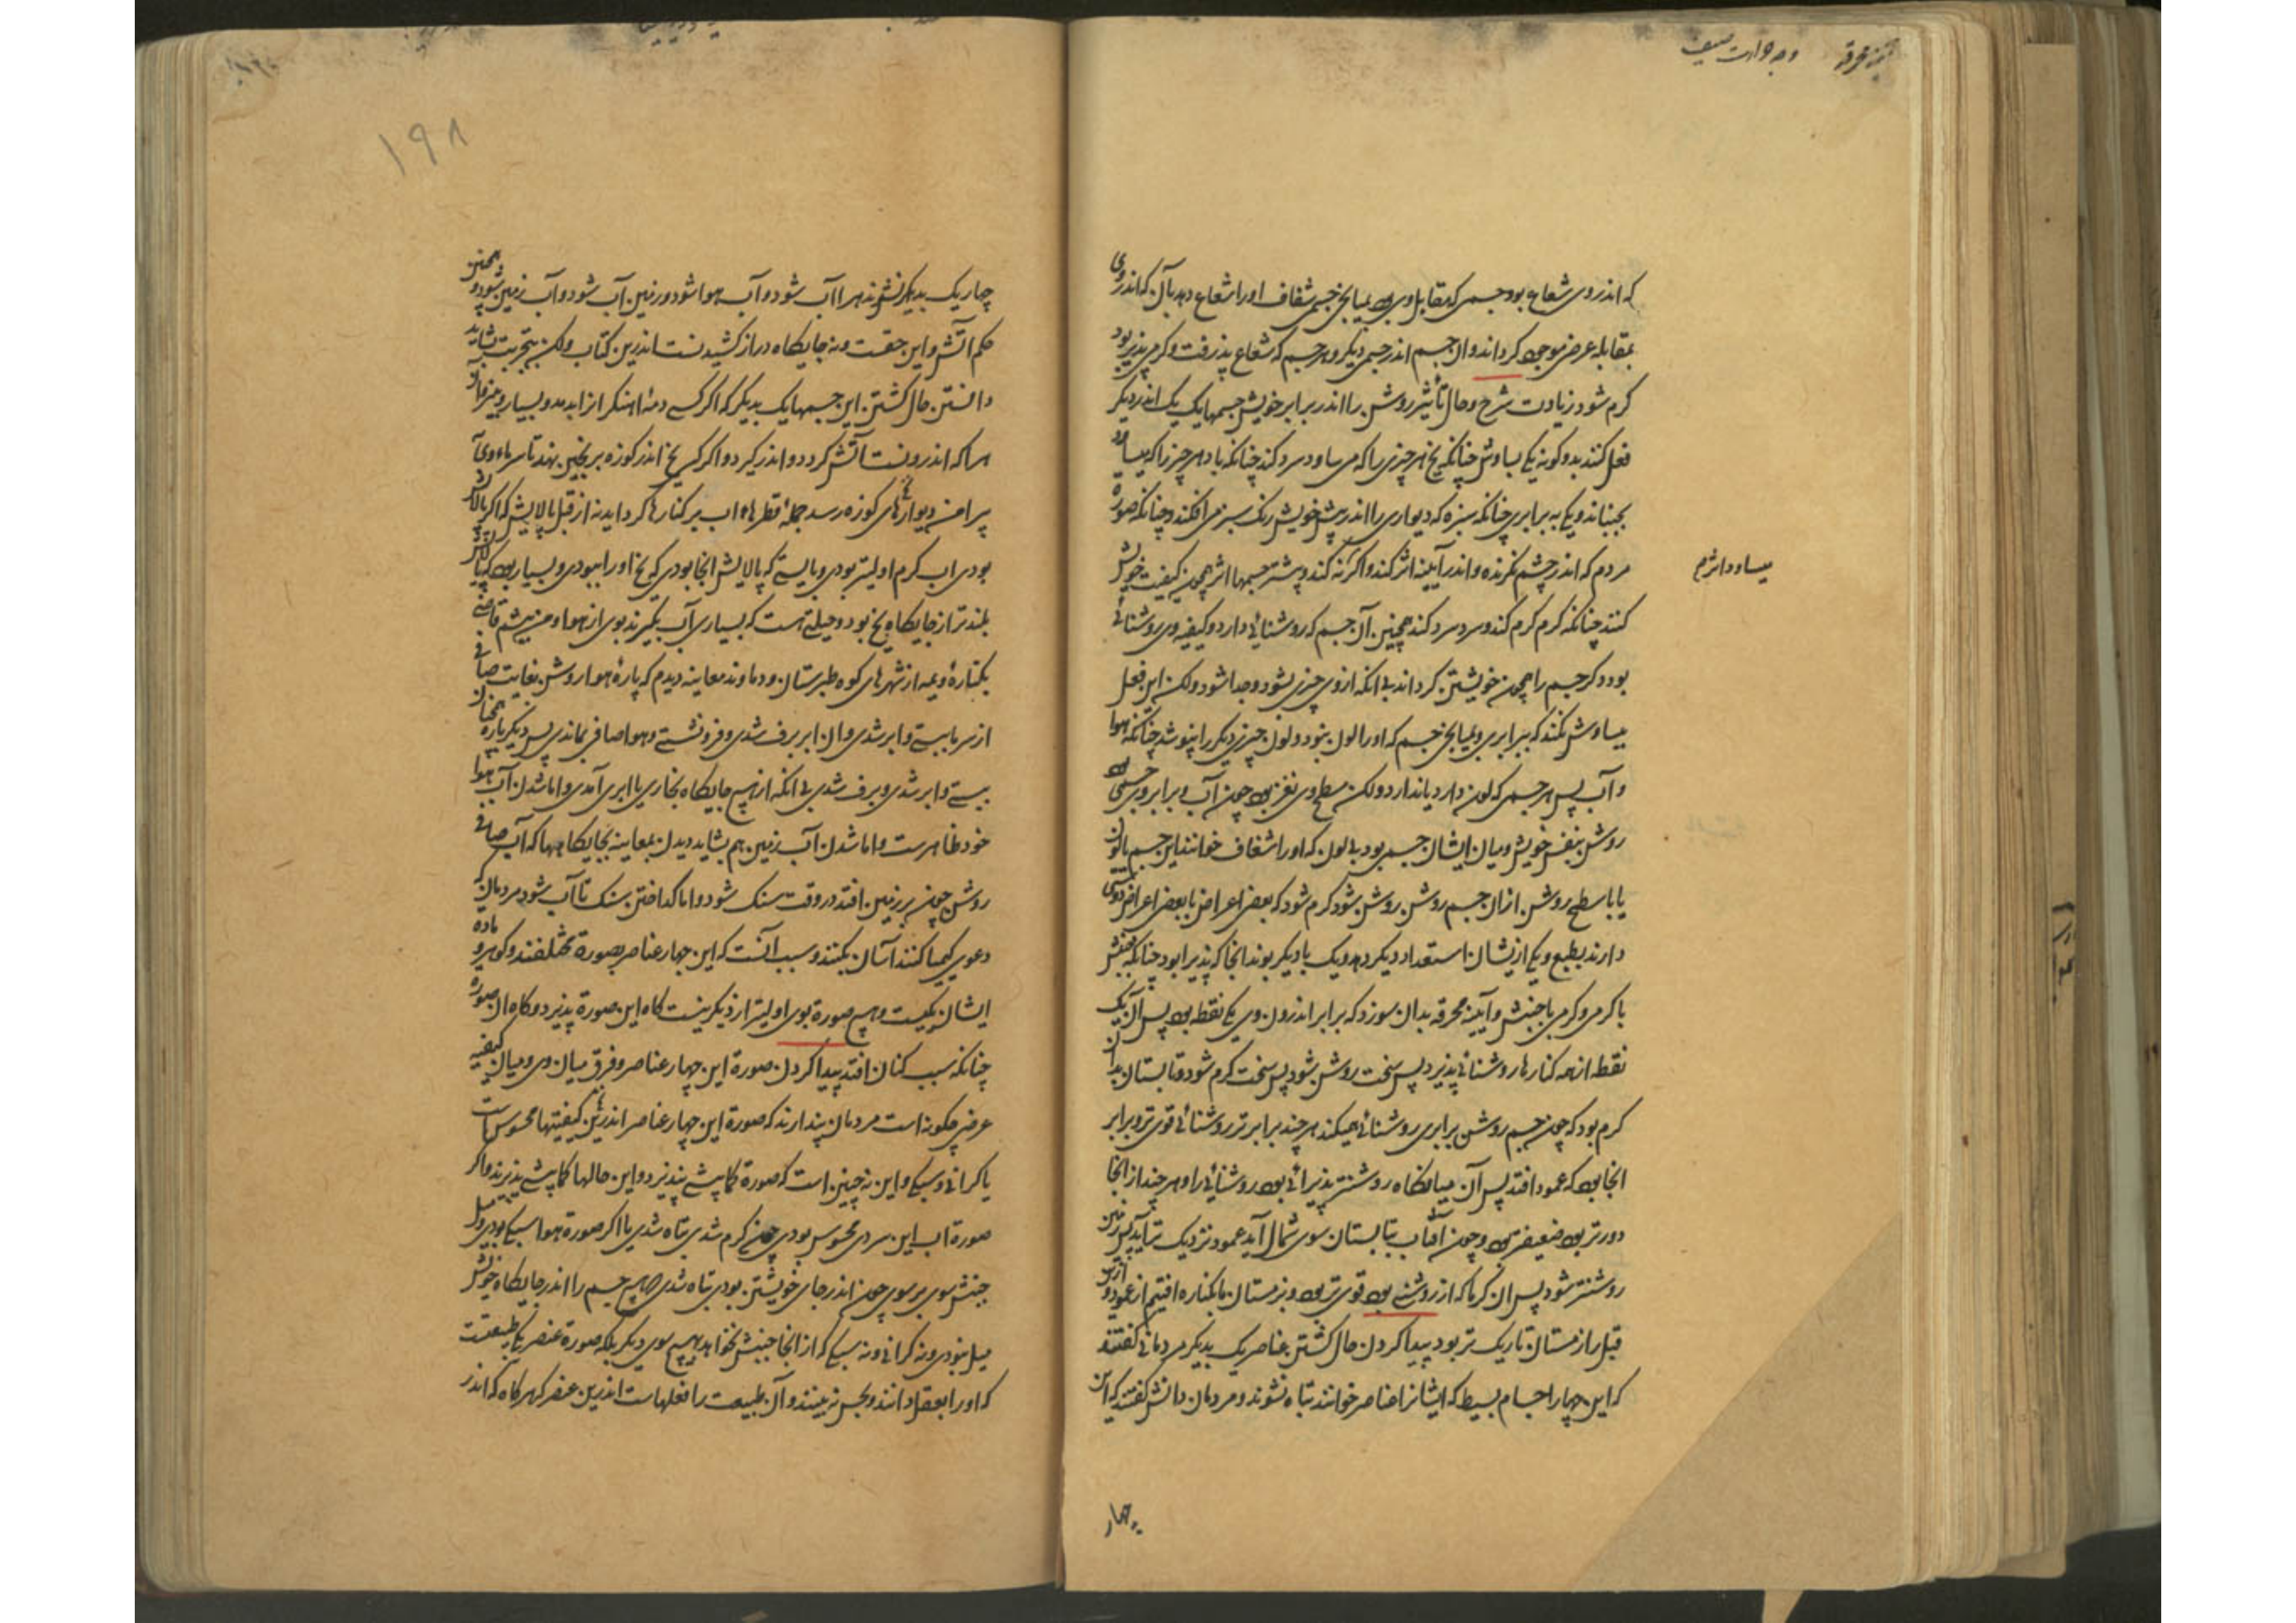 آینه محرقه
وجه حرارت صیف
که اندر وی شعاع بود جسمی که مقابل وی بود بمیانجی جسمی شفاف او را شعاع دهد بآن که اندر وی
بمقابله عرض موجود گرداند و آن جسم اندر جسمی دیگر و هر جسم که شعاع پذیرفت و گرمی پذیر بود
گرم شود زیادت شرح و حال تأثیر روشن را اندر برابر خویش جسمها یک بیک اندر دیگر
فعل کنند بدو گونه یکی بساوش چنانکه یخ هر چیزی را که می ساود سرد کند چنانکه باد هر چیز را که بساود
بجنباند و یکی به برابری چنانکه سبزه که دیواری را اندر پیش خویش رنگ سبز می افکند و چنانکه صورة
مردم که اندر چشم نگرنده و اندر آیینه اثر کند و اگر نه کند و بیشتر جسمها اثر همچون کیفیت خویش
میساود اثرم
کنند چنانکه گرم گرم کند و سرد سرد کند همچنین آن جسم که روشنائی دارد و کیفیه وی روشنائی
بود دگر جسم را همچون خویشتن گرداند بی انکه از وی چیزی بشود و جدا شود ولکن این فعل
بساوش نکند که ببرابری و بمیانجی جسم که او را لون نبود و لون چیزی دیگر را نپوشد چنانکه هوا
و آب پس هر جسمی که لون دارد یا ندارد ولکن سطح وی نغز بود چون آب و برابر وی جسمی بود
روشن بنفس خویش و میان ایشان جسمی بود بی لون که او را شفاف خوانند این جسم بالون
یا با سطح روشن از آن جسم روشن روشن شود گرم شود که بعض اعراض با بعض اعراض دوستی
دارند بطبع و یکی ازیشان استعداد دیگر دهد و یک با دیگر بوند انجا که پذیرا بود چنانکه جنبش
با گرمی و گرمی با جنبش و آیینه محرقه بدان سوزد که برابر اندرون وی یکی نقطه بود پس آن یک
نقطه از همه کنارها روشنائی پذیرد پس سخت روشن شود پس سخت گرم شود و تابستان بدان
گرم بود که چون جسم روشن برابری روشنائی همیکند هر چند برابرتر روشنائی قوی تر و برابر
انجا بود که عمود افتد پس آن میانگاه روشنتر پذیرائی بود روشنائی را و هر چند از انجا
دورتر بود ضعیفتر بود و چون آفتاب بتابستان سوی شمال آید عمود نزدیک تر آید پس زمین
روشنتر شود پس ان گرما که از روشنی بود قوی تر بود و بزمستان ما بکناره افتیم از عمود و ازین
قبل را زمستان تاریک تر بود پیدا کردن حال گشتن عناصر یک بدیگر مردمانی گفتند
که این چهار اجسام بسیط که ایشانرا عناصر خوانند تباه نشوند و مردمان دانش گفتند که این
چهار
١٩٨
چهار یک بدیگر نشوند هرا آب شود و آب هوا شود و زمین آب شود و آب زمین شود و همچنین
حکم آتش و این حقست و نه جایگاه دراز کشیدنست اندرین کتاب ولکن بتجربت بشاید
دانستن حال گشتن این جسمها یک بدیگر که اگر کسی دمهٔ اهنگران را بدمد و بسیار
هرا که اندرونست آتش گردد و اندر گیرد و اگر کسی یخ اندر کوزه برنجین بنهد تا سرماء وی
پیرامن دیوارهای کوزه رسد جملهٔ قطرهاء اب بر کنارها گرد آید نه از قبل پالایش که اگر پالایش
بودی اب گرم اولیتر بودی و بایستی که پالایش انجا بودی که یخ او را ببودی و بسیار بود که
بلندتر از جایگاه یخ بود و حیلتی هست که بسیاری آب بگیرند بوی از هوا و من بچشم
بکنارهٔ ویمه از شهرهای کوه طبرستان و دماوند معاینه دیدم که پارهٔ هوا روشن بغایت صافی
از سرما ببستی و ابر شدی و ان ابر برف شدی و فرو نشستی و هوا صافی بماندی پس دیگر باره همچنان
ببستی و ابر شدی و برف شدی بی انکه از هیچ جایگاه بخاری یا ابری آمدی و اما شدن آب هوا
خود ظاهرست و اما شدن آب زمین هم بشاید دیدن بمعاینه بجایگاهها که آب صافی
روشن چون بر زمین افتد در وقت سنگ شود و اما گداختن سنگ تا آب شود مردمان که
دعوی کیمیا کنند آسان بکنند و سبب آنست که این چهار عناصر بصورة مختلفند و گوهر و ماده
ایشان یکیست و هیچ صورة بوی اولیتر از دیگر نیست گاه این صورة پذیرد و گاه ان صورة
چنانکه سبب کنان افتد پیدا کردن صورة این چهار عناصر و فرق میان وی و میان کیفیه
عرضی چگونه است مردمان پندارند که صورة این چهار عناصر اندرین کیفیتها محسوس است
یا گرانی و سبکی و این نه چنین است که صورة کمابیشی نپذیرد و این حالها کمابیشی پذیرند و اگر
صورة اب این سردی محسوس بودی چون گرم شدی تباه شدی یا اگر صورة هوا سبکی بودی و میل
جنبش سوی بر سوی چون اندر جای خویشتن بودی تباه شدی که هیچ جسم را اندر جایگاه خویش
میل نبود و نه گرانی و نه سبکی که از انجا جنبش نخواهد بهیچ سوی دیگر بلکه صورة عنصر یکی طبیعتست
که او را بعقل دانند و بحس نه بینند و آن طبیعت را فعلهاست اندرین عنصر که هرگاه که اندر